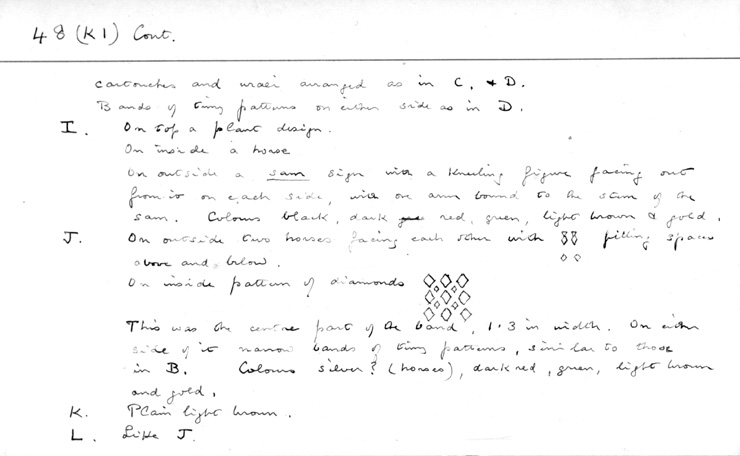 48 (K1) Cont.
cartouches and uraei arranged as in C, & D.
Bands of tiny patterns on either side as in D.
I. On top a plant design.
On inside a horse
On outside a sam sign with a kneeling figure facing out
from it on each side, with one arm bound to the stem of the
sam. Colours black, dark red, green, light brown & gold.
J. On outside two horses facing each other with filling spaces
above and below.
On inside pattern of diamonds
This was the centre part of the band, 1.3 in width. On either
side of it narrow bands of tiny patterns, similar to those
in B. Colours silver? (horses), dark red, green, light brown
and gold.
K. Plain light brown.
L. Like J.